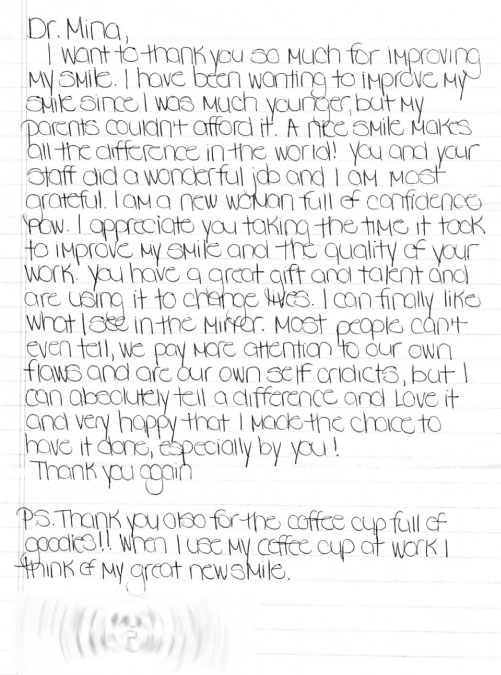 Dr. Mina,
I want to thank you so much for improving
my smile. I have been wanting to improve my
smile since I was much younger, but my
parents couldn't afford it. A nice smile makes
all the difference in the world! You and your
staff did a wonderful job and I am most
grateful. I am a new woman full of confidence
now. I appreciate you taking the time it took
to improve my smile and the quality of your
work. You have a great gift and talent and
are using it to change lives. I can finally like
what I see in the mirror. Most people can't
even tell, we pay more attention to our own
flaws and are our own self cridicts, but I
can absolutely tell a difference and Love it
and very happy that I made the choice to
have it done, especially by you!
Thank you again
PS. Thank you also for the coffee cup full of
goodies!! When I use my coffee cup at work I
think of my great new smile.